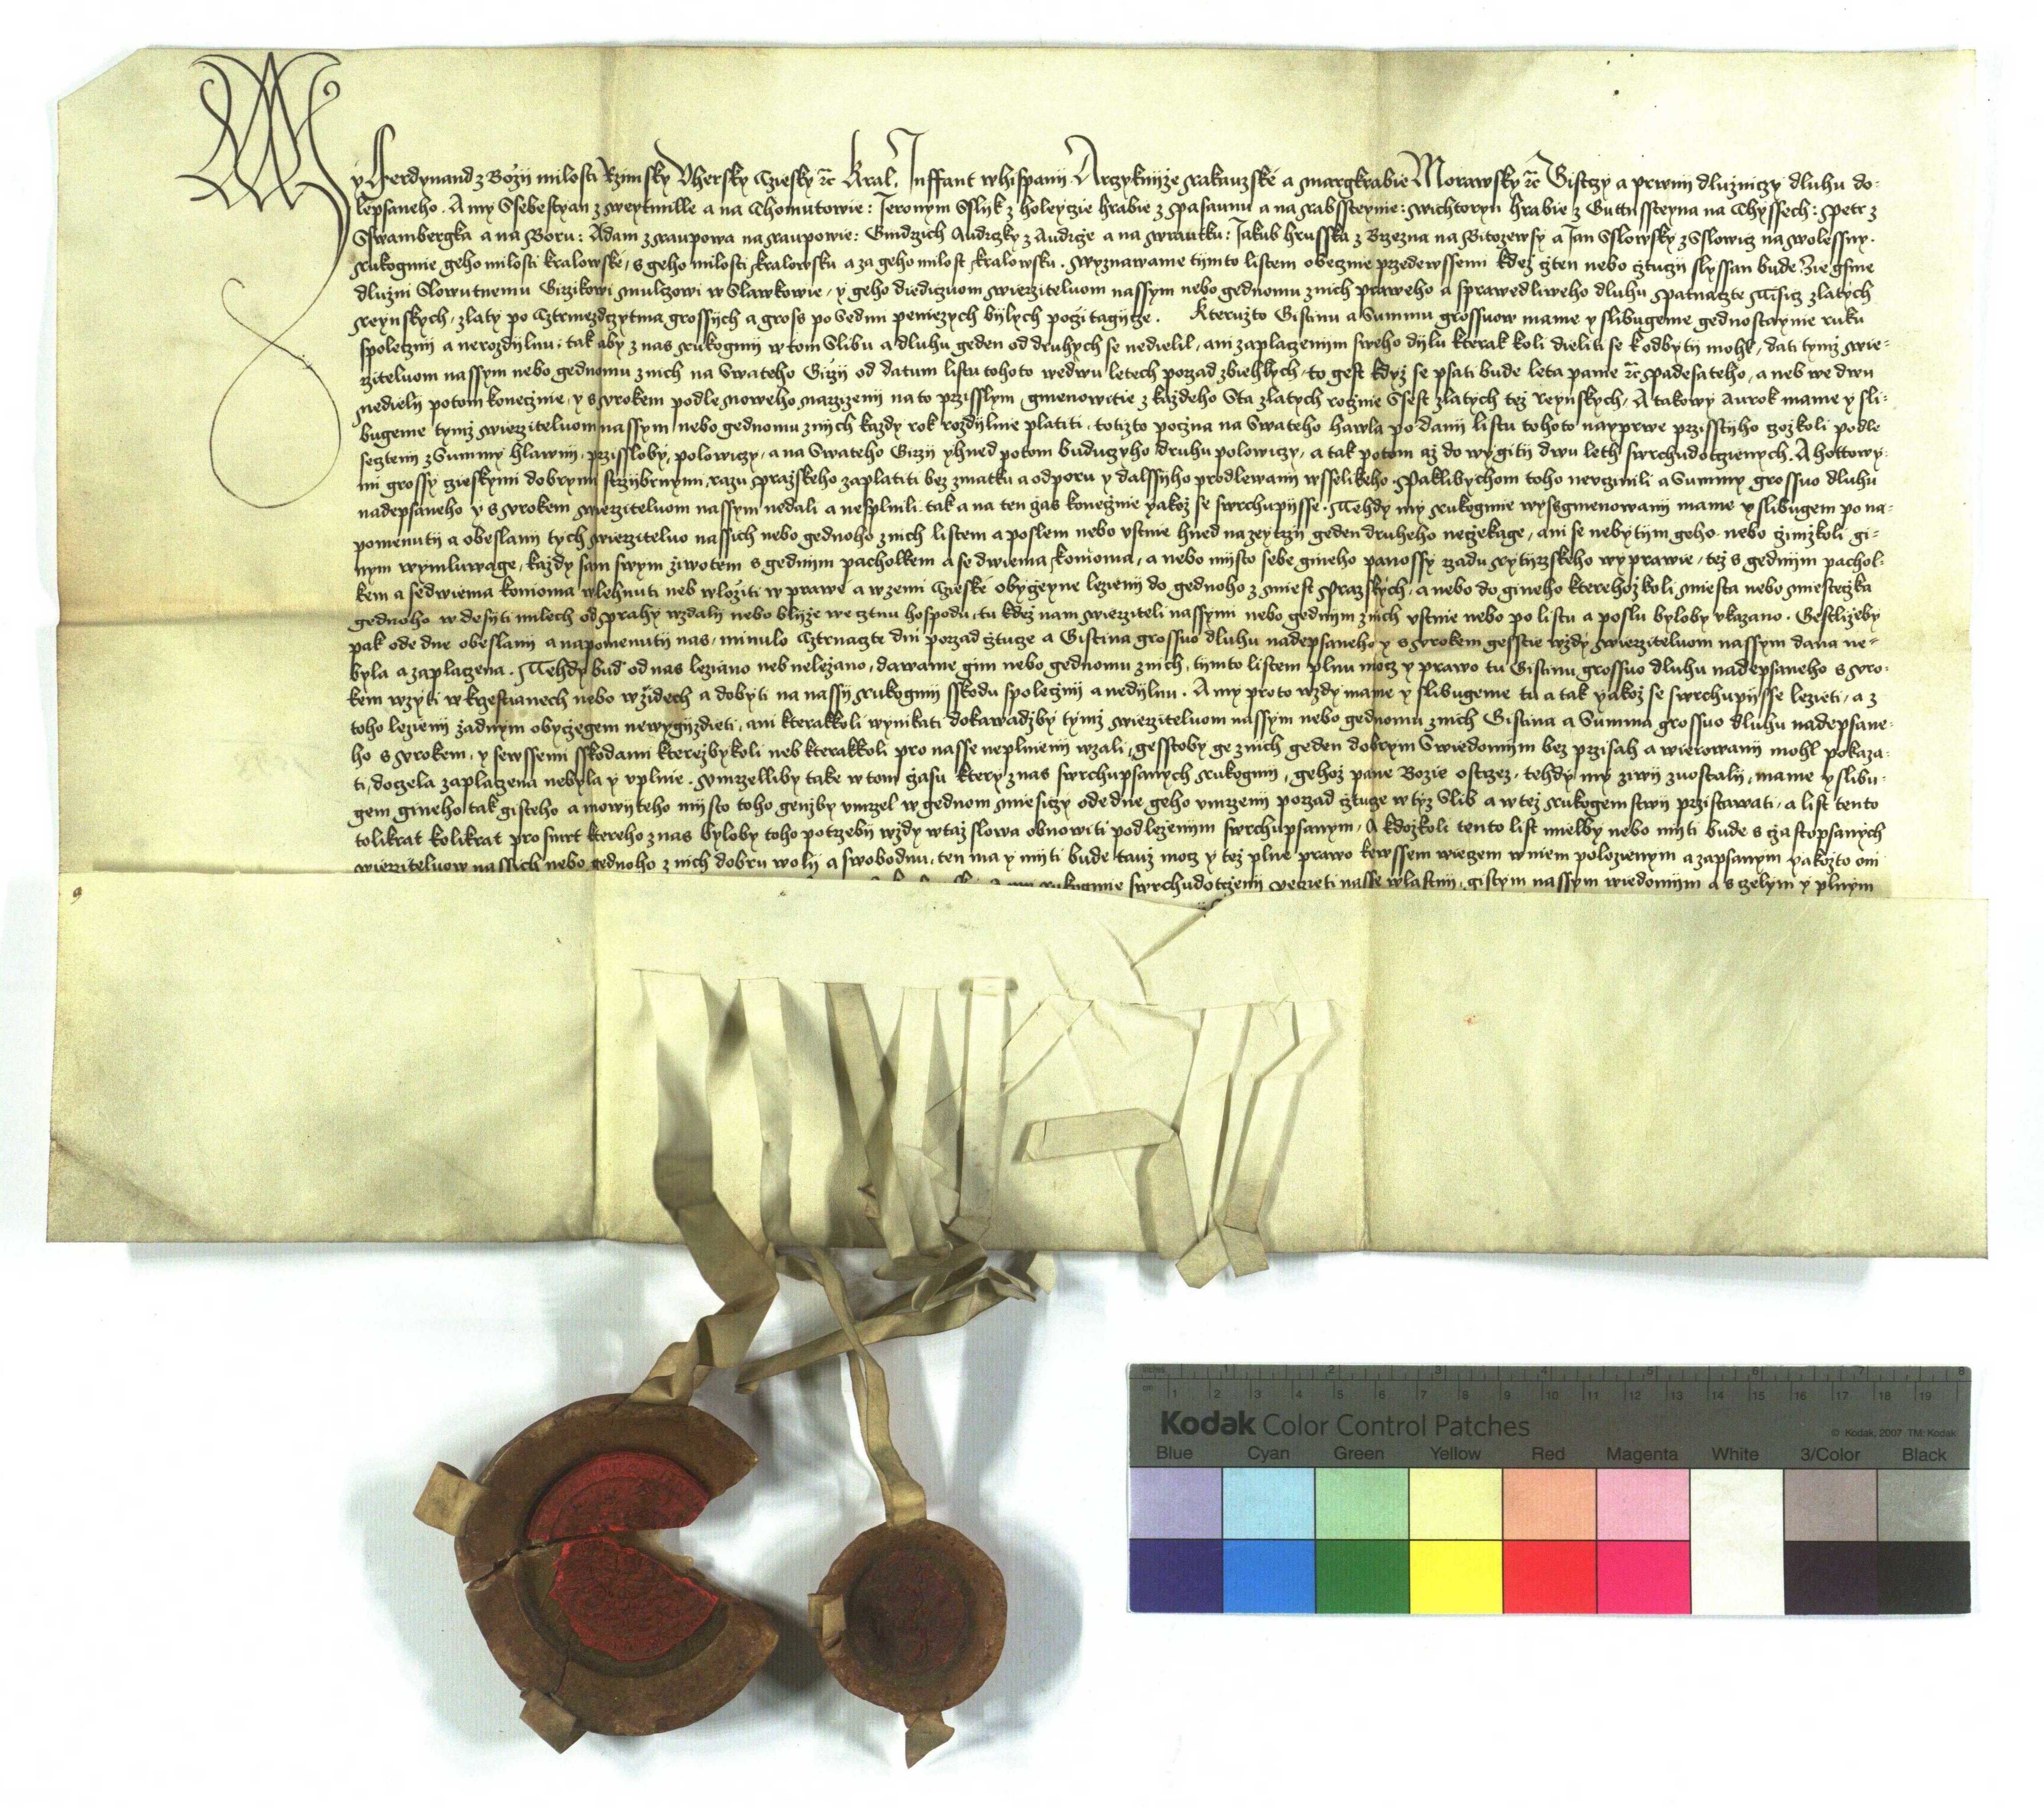 My Ferdynand z Božij milosti Rzimsky Vhersky Cziesky ꝛc̃ Kral, Inffant w hispanij Arczyknijze Rakauzské a Margkrabie Morawsky ꝛc̃ Gistczy a prwnij dlužniczy dluhu do-
lepsaneho. A my Ssebestyan z Weytmille a na Chomutowie: Jeronym Sslijk z holeyczie hrabie z Pasaunu a na Rabssteynie: Wichtoryn hrabie z Guttnssteyna na Chyssech: Petr z
Sswambergka a na Boru: Adam z Raupowa na Raupowie: Gindrzich Audrczky z Audrče a na Wrautku: Jakub hrusska z Brzezna na Bitozewsy a Jan Vslowsky z Vslowicz na Wolessny.
Rukogmie geho milosti kralowské, s geho milosti kralowsku a za geho milost kralowsku. Wyznawame tijmto listem obecznie przedewssemi kdež čten nebo čtuczy slyssan bude Žie gsme
dlužni Slowutnemu Girzikowi Mulczowi w Slawkowie, y geho diediczuom wierziteluom nassym nebo gednomu z nich praweho a sprawedliweho dluhu Patnaczte Tisicz zlatych
Reynskych, zlaty po Cztrmezdczytma grossijch a gross po Sedmi peniezych bijlych počitagijcze. Kteružto Gistinu a Summu grossuow mame y slibugeme gednostaynie ruku
spolecznij a nerozdijlnu: tak aby z nas Rukogmij w tom Slibu a dluhu geden od druhych se nedielil, ani zaplaczenijm sweho dijlu kterak koli dieliti se k odbytij mohl, dati tymž wie-
rziteluom nassym nebo gednomu z nich na Swateho Girzij od datum listu tohoto we dwu letech porzad zbiehlych, to gest když se psati bude leta panie ꝛc̃ Padesateho, a neb we dwu
nedielij potom konecznie, y s vrokem podle noweho narzizenij na to przisslym, gmenowitie z každeho Sta zlatychročnie Ssest zlatych tež Reynskych, A takowy aurok mame y sli-
bugeme tymž wierziteluom nassym nebo gednomu z nich každy rok rozdijlnie platiti, totižto počna na Swateho hawla po danij listu tohoto nayprwe przisstijho zožkoli podle
secztenij z Summy hlawnij przissloby, polowiczy, a na Swateho Girzij yhned potom buduczyho druhu polowiczy, a tak potom až do wygitij dwu leth swrchudotčenych. A hottowy-
mi grossy czieskymi dobrymi strzijbrnymi razu pražskeho zaplatiti bez zmatku a odporu y dalssijho prodlewanij wsselikeho. Paklibychom toho nevczinili a Summy grossuo dluhu
nadepsaneho y s vrokem wierziteluom nassym nedali a nesplnili, tak a na ten čas konečnie yakož se swrchupijsse. Tehdy my Rukogmie wyssgmenowanij mame y slibugem po na-
pomenutij a obeslanij tych wierziteluo nassich nebo gednoho z nich listem a poslem nebo vstnie hned nazeytrzij geden druheho nečekage, ani se nebytijm geho nebo čimžkoli gi-
nym wymluwage, každy sam swym žiwotem s gednijm pacholkem a se dwiema konioma, a nebo mijsto sebe gineho panossy rzadu Rytijrzskeho wyprawie, tež s gednijm pachol-
kem a se dwiema konioma wlehnuti neb wložiti w prawe a w zemi Czieské obyčeyne leženij do gednoho z Miest Pražskych, a nebo do gineho kterehožkoli Miesta nebo Miesteczka
gednoho w desijti milech od prahy wzdalij nebo blijže we cztnu hospodu, tu kdež nam wierziteli nassymi nebo gednijm z nich vstnie nebo po listu a poslu byloby vkazano. Gestližeby
pak ode dne obeslanij a napomenutij nas, minulo Cztrnaczte dni porzad čtucze a Gistina grossuo dluhu nadepsaneho y s vrokem gesstie wždy wierziteluom nassym dana ne-
byla a zaplaczena. Tehdy bud' od nas ležano neb neležano, dawame gim nebo gednomu z nich, tijmto listem plnu mocz y prawo tu Gistinu grossuo dluhu nadepsaneho s vro-
kem wzyti w krzestianech nebo w židech a dobyti na nassij Rukogmij sskodu spolecznij a nedijlnu. A my proto wzdy mame y slibugeme tu a tak yakož se swrchupijsse ležeti, a z
toho leženij žadnym obyčegem newygijzdieti, ani kterakkoli wynikati dokawadžby tymž wierziteluom nassym nebo gednomu z nich Gistina a Summa grossuo dluhu nadepsane-
ho s vrokem, y sewssemi sskodami kterežbykoli neb kterakkoli pro nasse neplnienij wzali, gesstoby ge z nich geden dobrym Swiedomijm bez przisah a wierowanij mohl pokaza-
ti, doczela zaplaczena nebyla y vplnie. Vmrzelliby take w tom času ktery z nas swrchupsanych Rukogmij, gehož pane Bože ostrzez, tehdy my žiwij zuostalij, mame y slibu-
gem gineho tak gisteho a mowiteho mijsto toho genžby vmrzel w gednom miesiczy ode dne geho vmrzenij porzad čtucze w tyž Slib a w tež Rukogemstwij przistawati, a list tento
tolikrat kolikrat pro smrt ktereho z nas byloby toho potrzebij wždy w taž slowa obnowiti pod leženijm swrchupsanym, A kdožkoli tento list mielby nebo mijti bude s častopsanych
wierziteluow nassich nebo gednoho z nich dobru wolij a swobodnu, ten ma y mijti bude tauž mocz y tež plne prawo kewssem wieczem w niem položenym a zapsanym yakožto oni
Rukogmie swrchudotčenij peczeti nasse wlastnij, gistym nassym wiedomijm a s czelym y plnym
Kodak Color Control Patches
© Kodak, 2007 TM: Kodak
Blue Cyan Green Yellow Red Magenta White 3/Color Black